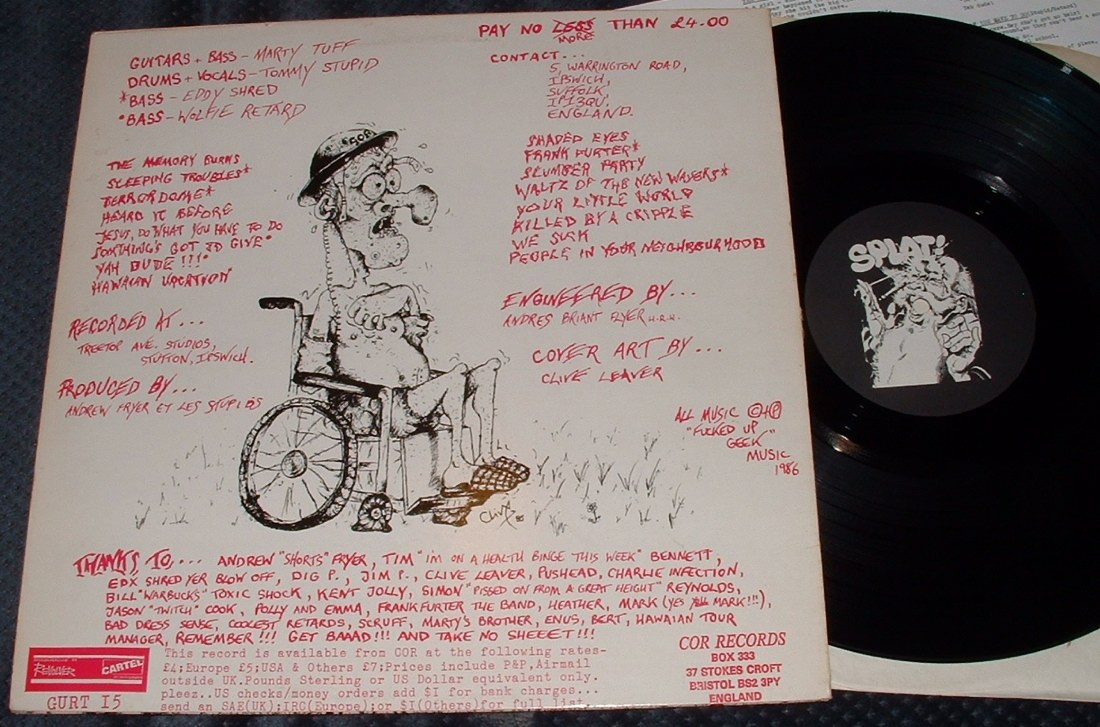 PAY NO LESS THAN £4.00
MORE
GUITARS + BASS - MARTY TUFF
DRUMS + VOCALS - TOMMY STUPID
*BASS - EDDY SHRED
•BASS - WOLFIE RETARD
CONTACT...
5, WARRINGTON ROAD,
IPSWICH,
SUFFOLK,
IP1 3QU,
ENGLAND.
THE MEMORY BURNS
SLEEPING TROUBLES*
TERRORDOME*
HEARD IT BEFORE
JESUS, DO WHAT YOU HAVE TO DO
SOMTHING'S GOT TO GIVE•
YAH DUDE !!!•
HAWAIAN VACATION
SHADED EYES
FRANK FURTER*
SLUMBER PARTY
WALTZ OF THE NEW WAVERS*
YOUR LITTLE WORLD
KILLED BY A CRIPPLE
WE SUCK
PEOPLE IN YOUR NEIGHBOURHOOD
RECORDED AT...
TREETOP AVE. STUDIOS,
STUTTON, IPSWICH.
PRODUCED BY...
ANDREW FRYER ET LES STUPIDS
ENGINEERED BY...
ANDRES BRIANT FLYER
COVER ART BY...
CLIVE LEAVER
ALL MUSIC ©+℗
"FUCKED UP
GEEK"
MUSIC
1986
CLIVE
THANKS TO.... ANDREW "SHORTS" FRYER, TIM "I'M ON A HEALTH BINGE THIS WEEK" BENNETT,
EDX SHRED YER BLOW OFF, DIG P., JIM P., CLIVE LEAVER, PUSHEAD, CHARLIE INFECTION,
BILL "WARBUCKS" TOXIC SHOCK, KENT JOLLY, SIMON "PISSED ON FROM A GREAT HEIGHT" REYNOLDS,
JASON "TWITCH" COOK, POLLY AND EMMA, FRANKFURTER THE BAND, HEATHER, MARK (YES MARK!!!),
BAD DRESS SENSE, COOLEST RETARDS, SCRUFF, MARTY'S BROTHER, ENUS, BERT, HAWAIAN TOUR
MANAGER, REMEMBER!!! GET BAAAD!!! AND TAKE NO SHEEET!!!
CARTEL
GURT I5
This record is available from COR at the following rates-
£4;Europe £5;USA & Others £7;Prices include P&P,Airmail
outside UK.Pounds Sterling or US Dollar equivalent only.
pleez..US checks/money orders add $I for bank charges...
send an SAE(UK);IRC(Europe);or $I(Others)for full list.
COR RECORDS
BOX 333
37 STOKES CROFT
BRISTOL BS2 3PY
ENGLAND
SPLAT!